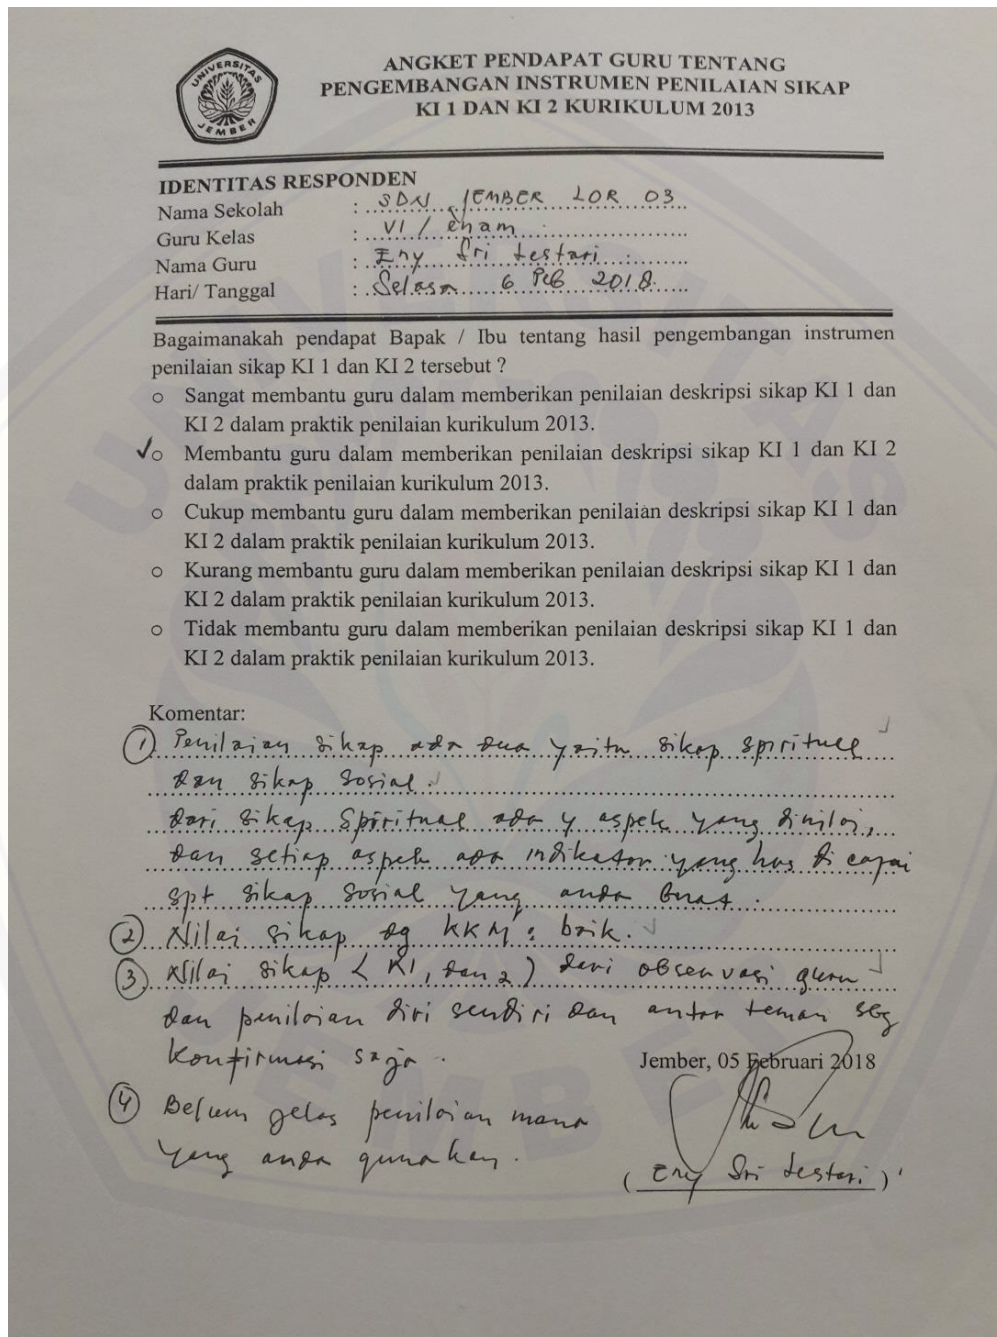 UNIVERSITAS
JEMBER
ANGKET PENDAPAT GURU TENTANG
PENGEMBANGAN INSTRUMEN PENILAIAN SIKAP
KI 1 DAN KI 2 KURIKULUM 2013
IDENTITAS RESPONDEN
Nama Sekolah : SDN JEMBER LOR 03
Guru Kelas : VI / enam
Nama Guru : Eny Sri Lestari
Hari/ Tanggal : Selasa 6 Peb 2018
Bagaimanakah pendapat Bapak / Ibu tentang hasil pengembangan instrumen
penilaian sikap KI 1 dan KI 2 tersebut ?
○ Sangat membantu guru dalam memberikan penilaian deskripsi sikap KI 1 dan
KI 2 dalam praktik penilaian kurikulum 2013.
✓○ Membantu guru dalam memberikan penilaian deskripsi sikap KI 1 dan KI 2
dalam praktik penilaian kurikulum 2013.
○ Cukup membantu guru dalam memberikan penilaian deskripsi sikap KI 1 dan
KI 2 dalam praktik penilaian kurikulum 2013.
○ Kurang membantu guru dalam memberikan penilaian deskripsi sikap KI 1 dan
KI 2 dalam praktik penilaian kurikulum 2013.
○ Tidak membantu guru dalam memberikan penilaian deskripsi sikap KI 1 dan
KI 2 dalam praktik penilaian kurikulum 2013.
Komentar:
① Penilaian sikap ada dua yaitu sikap spirituel
dan sikap sosial.
dari sikap Spiritual ada 4 aspek yang dinilai,
dan setiap aspek ada indikator yang hrs di capai
spt sikap sosial yang anda buat.
② Nilai sikap dg KKM : baik.
③ Nilai sikap ( KI 1 dan 2 ) dari observasi guru
dan penilaian diri sendiri dan antar teman sbg
konfirmasi saja.
Jember, 05 Februari 2018
④ Belum jelas penilaian mana
yang anda gunakan.
( Eny Sri Lestari )